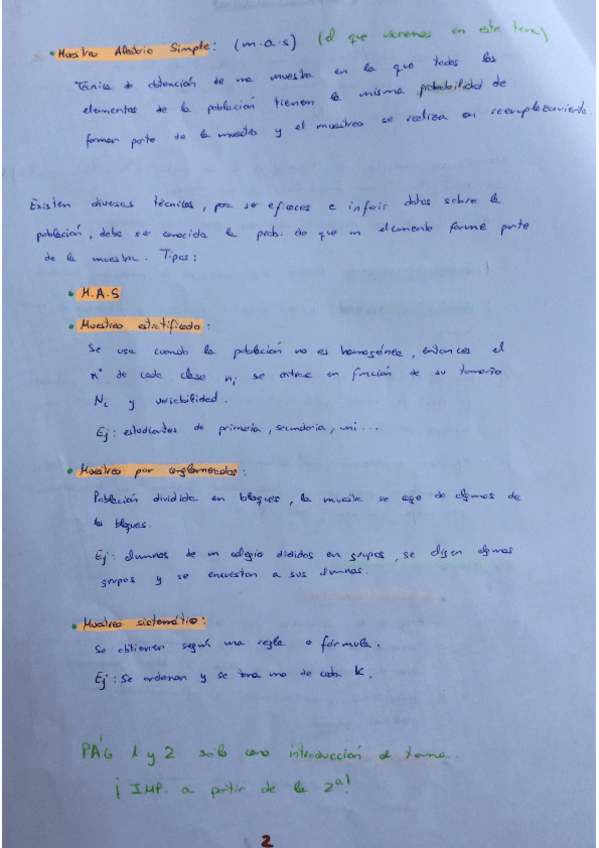 • Muestreo Aleatorio Simple: (m.a.s) (el que veremos en este tema)
Técnica de obtención de una muestra en la que todos los
elementos de la población tienen la misma probabilidad de
formar parte de la muestra y el muestreo se realiza con reemplazamiento.
Existen diversas técnicas, para ser eficaces e inferir datos sobre la
población, debe ser conocida la prob. de que un elemento forme parte
de la muestra. Tipos:
• M.A.S
• Muestreo estratificado:
Se usa cuando la población no es homogénea, entonces el
nº de cada clase ni se extrae en función de su tamaño
Ni y variabilidad.
Ej: estudiantes de primaria, secundaria, uni...
• Muestreo por conglomerados:
Población dividida en bloques, la muestra se coge de algunos de
los bloques.
Ej: alumnos de un colegio dididos en grupos, se eligen algunos
grupos y se encuestan a sus alumnos.
• Muestreo sistemático:
Se obtienen según una regla o fórmula.
Ej: Se ordenan y se toma uno de cada K.
PÁG 1 y 2 sólo como introducción al tema.
¡IMP. a partir de la 2ª!
2